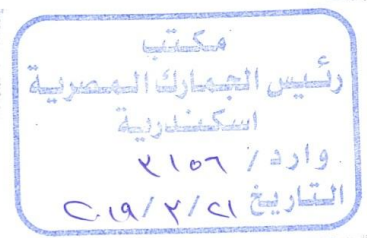 مكتب
رئيس الجمارك المصرية
اسكندرية
وارد / ٣١٥٦
التاريخ ٢١/٣/٢٠١٩